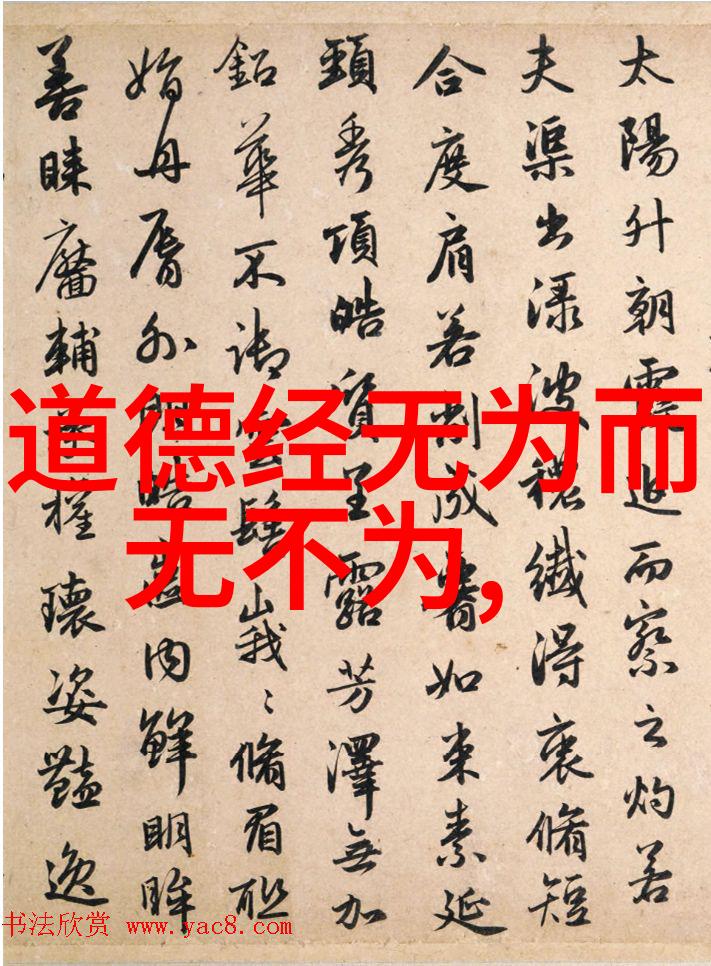 太陽升朝霞迫而察之灼若
夫渠出淥波穠纖得衷脩短
合度肩若削成如束素延
頸秀項皓質呈露芳澤無加
鉛華不御雲髻峩〻脩眉聯
娟丹脣外朗皓齒內鮮明眸
善睞靨輔承權瓌姿豔逸
道德经无为而
无不为,
书法欣赏 www.yac8.com